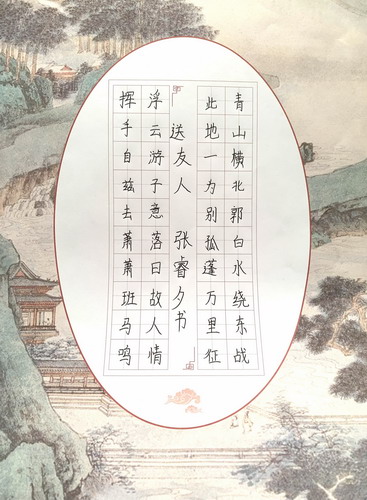 青山横北郭白水绕东战
此地一为别孤蓬万里征
送友人 张睿夕书
浮云游子意落日故人情
挥手自兹去萧萧班马鸣